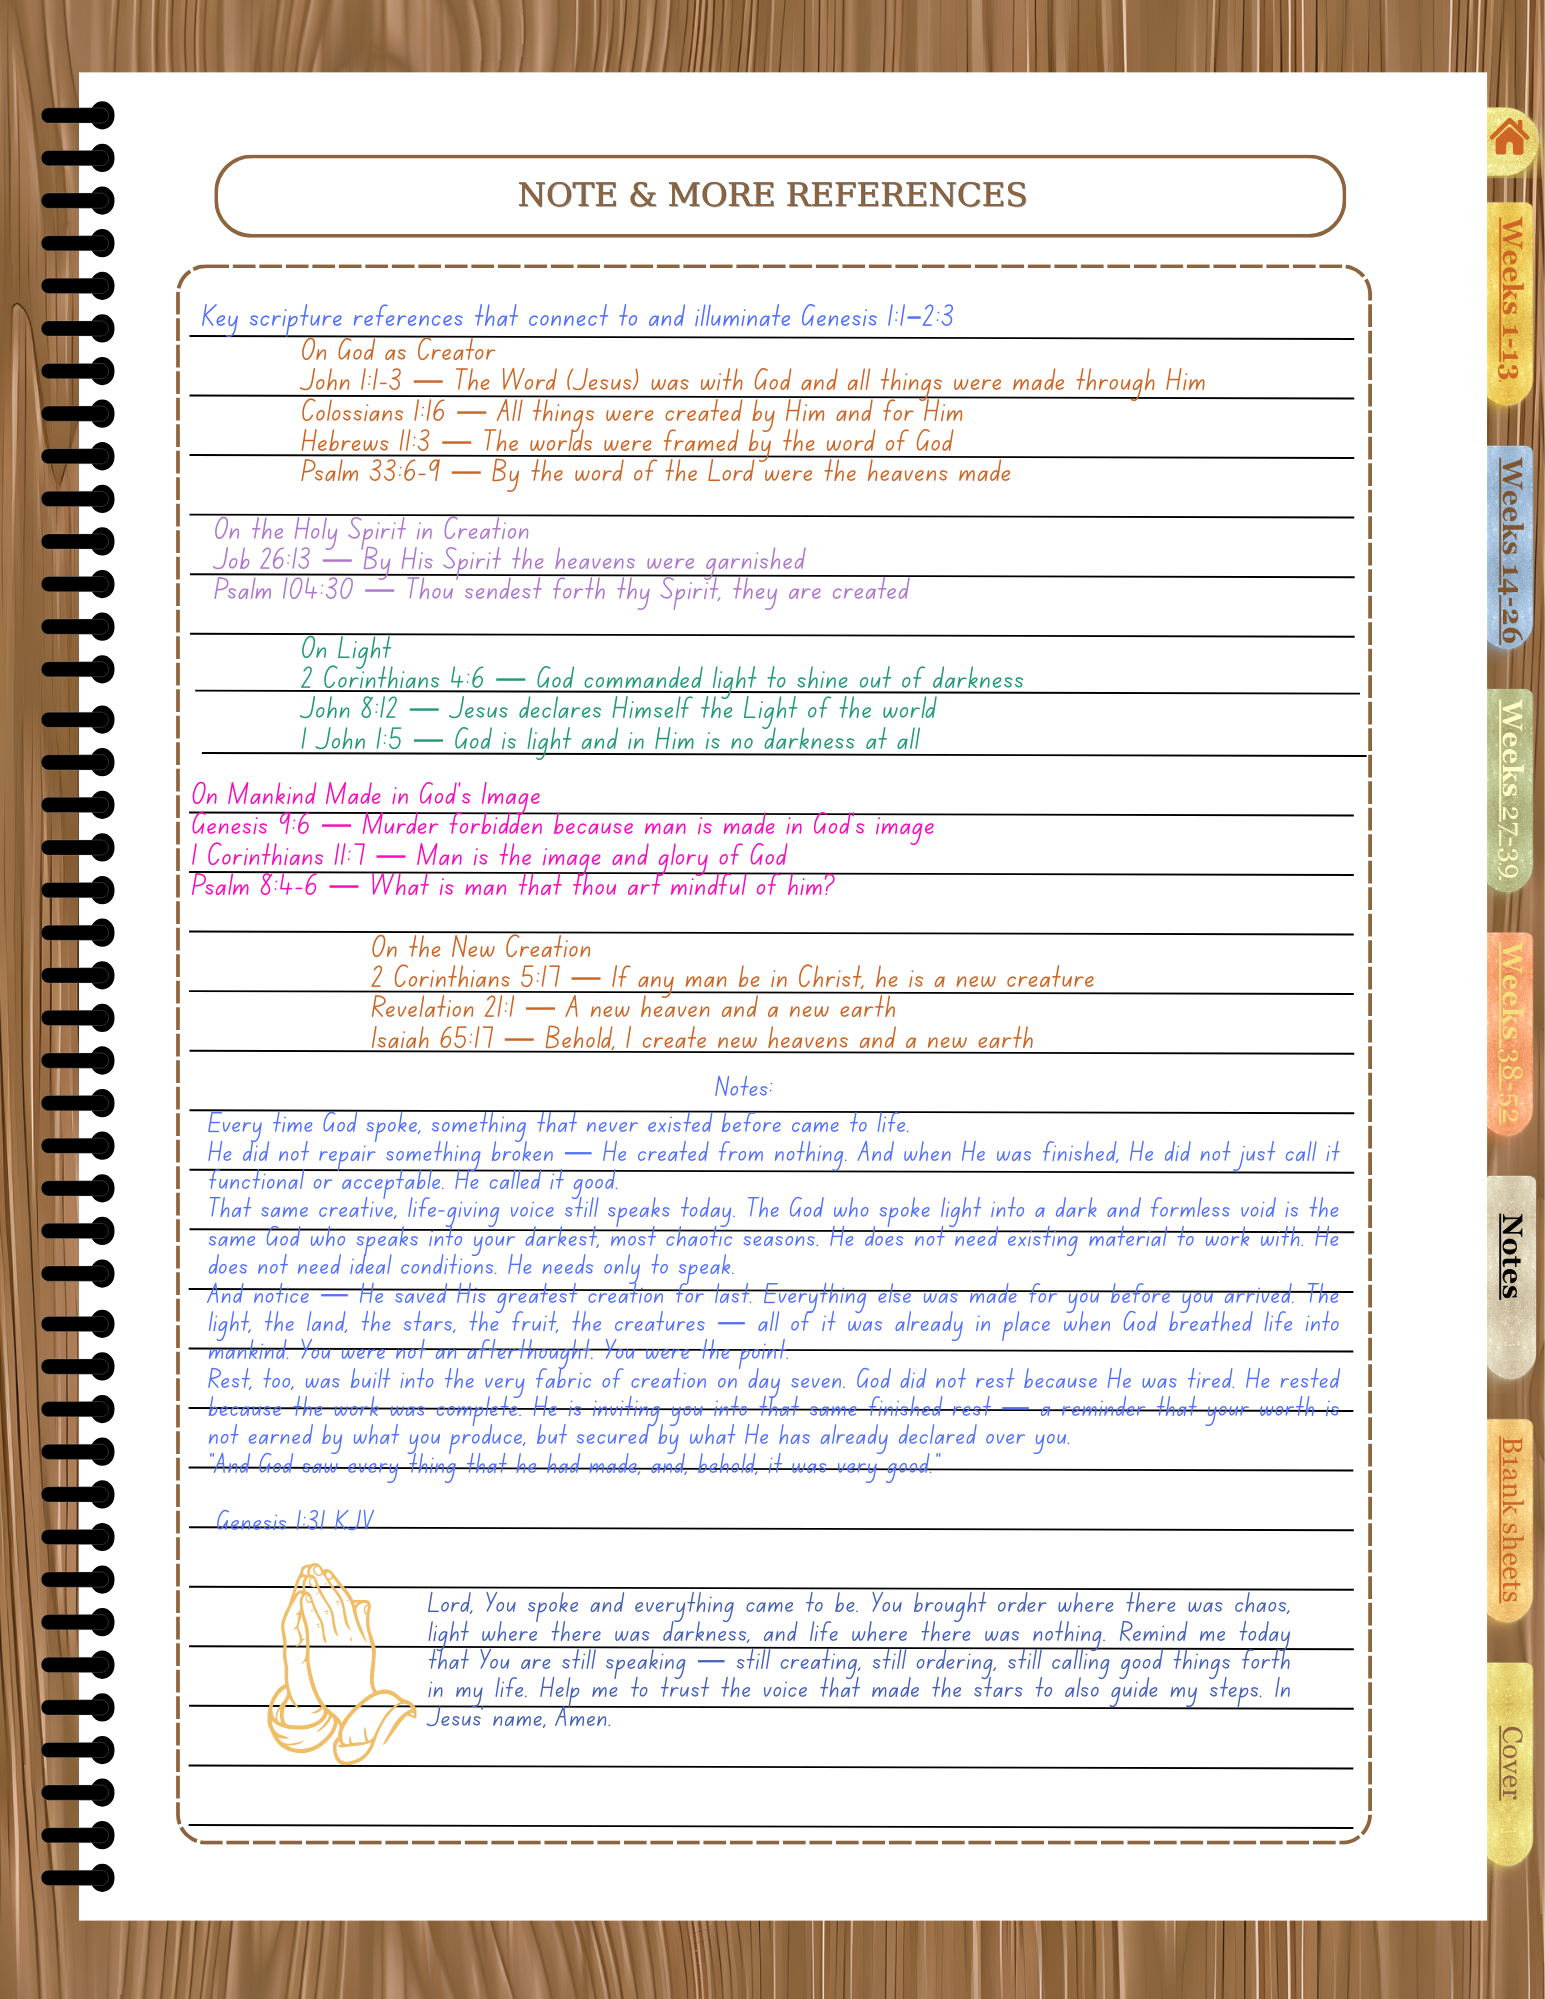 NOTE & MORE REFERENCES
Key scripture references that connect to and illuminate Genesis 1:1–2:3
On God as Creator
John 1:1-3 — The Word (Jesus) was with God and all things were made through Him
Colossians 1:16 — All things were created by Him and for Him
Hebrews 11:3 — The worlds were framed by the word of God
Psalm 33:6-9 — By the word of the Lord were the heavens made
On the Holy Spirit in Creation
Job 26:13 — By His Spirit the heavens were garnished
Psalm 104:30 — Thou sendest forth thy Spirit, they are created
On Light
2 Corinthians 4:6 — God commanded light to shine out of darkness
John 8:12 — Jesus declares Himself the Light of the world
1 John 1:5 — God is light and in Him is no darkness at all
On Mankind Made in God's Image
Genesis 9:6 — Murder forbidden because man is made in God's image
1 Corinthians 11:7 — Man is the image and glory of God
Psalm 8:4-6 — What is man that thou art mindful of him?
On the New Creation
2 Corinthians 5:17 — If any man be in Christ, he is a new creature
Revelation 21:1 — A new heaven and a new earth
Isaiah 65:17 — Behold, I create new heavens and a new earth
Notes:
Every time God spoke, something that never existed before came to life.
He did not repair something broken — He created from nothing. And when He was finished, He did not just call it
functional or acceptable. He called it good.
That same creative, life-giving voice still speaks today. The God who spoke light into a dark and formless void is the
same God who speaks into your darkest, most chaotic seasons. He does not need existing material to work with. He
does not need ideal conditions. He needs only to speak.
And notice — He saved His greatest creation for last. Everything else was made for you before you arrived. The
light, the land, the stars, the fruit, the creatures — all of it was already in place when God breathed life into
mankind. You were not an afterthought. You were the point.
Rest, too, was built into the very fabric of creation on day seven. God did not rest because He was tired. He rested
because the work was complete. He is inviting you into that same finished rest — a reminder that your worth is
not earned by what you produce, but secured by what He has already declared over you.
"And God saw every thing that he had made, and, behold, it was very good."
Genesis 1:31 KJV
Lord, You spoke and everything came to be. You brought order where there was chaos,
light where there was darkness, and life where there was nothing. Remind me today
that You are still speaking — still creating, still ordering, still calling good things forth
in my life. Help me to trust the voice that made the stars to also guide my steps. In
Jesus' name, Amen.
Weeks 1-13
Weeks 14-26
Weeks 27-39
Weeks 38-52
Notes
Blank sheets
Cover